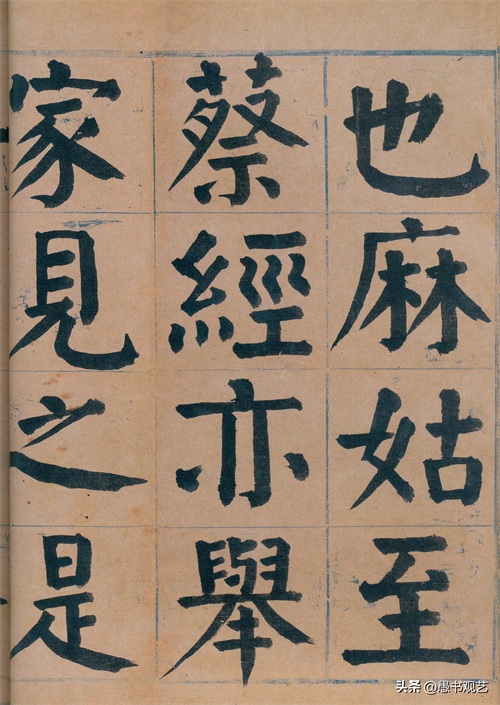 也麻姑至
蔡經亦舉
家見之是
头条@愚书观艺